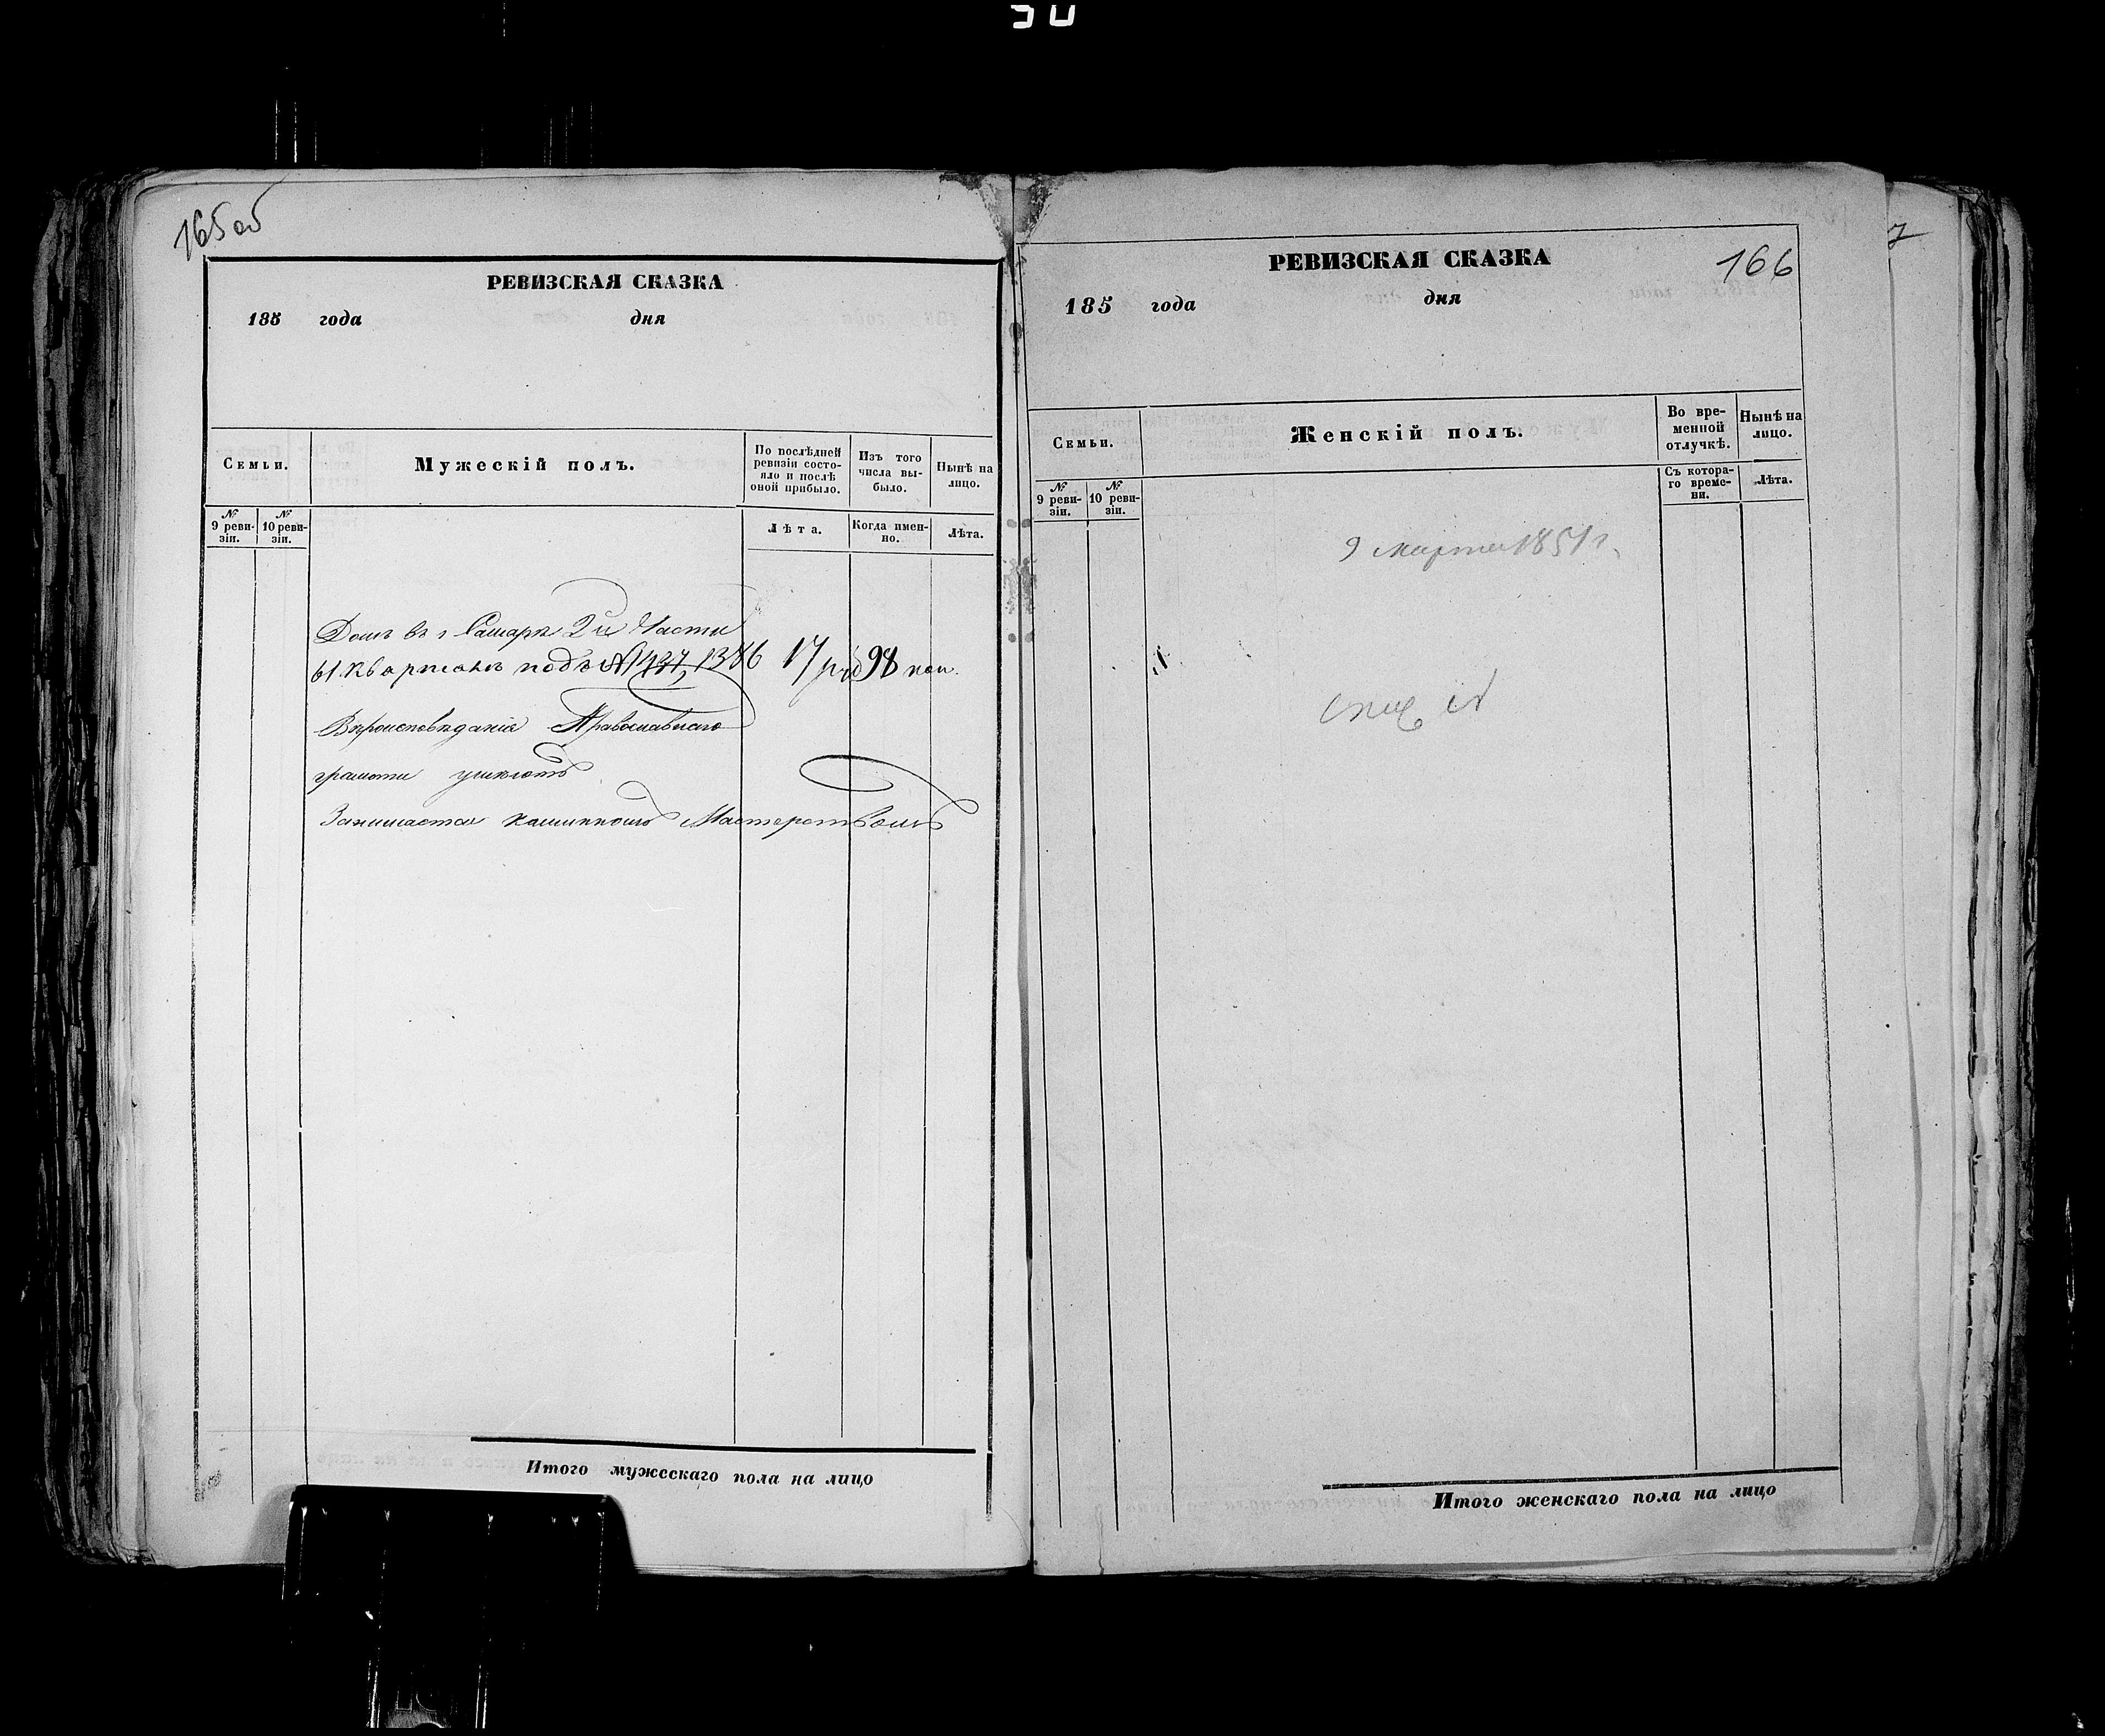 165 об
РЕВИЗСКАЯ СКАЗКА
185 года дня
Семьи.
Мужескій полъ.
По послѣдней ревизіи состояло и послѣ оной прибыло.
Изъ того числа выбыло.
Нынѣ на лицо.
№ 9 ревизіи.
№ 10 ревизіи.
Лѣта.
Когда именно.
Лѣта.
Домъ въ г Самарѣ 2й Части
61 кварталѣ подъ № 1386 17 руб 98 коп.
Вѣроисповѣданія Православнаго
грамоти умѣютъ
Занимается Мастерствомъ
Итого мужескаго пола на лицо
166
РЕВИЗСКАЯ СКАЗКА
185 года дня
Семьи.
Женскій полъ.
Во временной отлучкѣ.
Нынѣ на лицо.
№ 9 ревизіи.
№ 10 ревизіи.
Съ котораго времени.
Лѣта.
9 марта 1851 г.
Итого женскаго пола на лицо